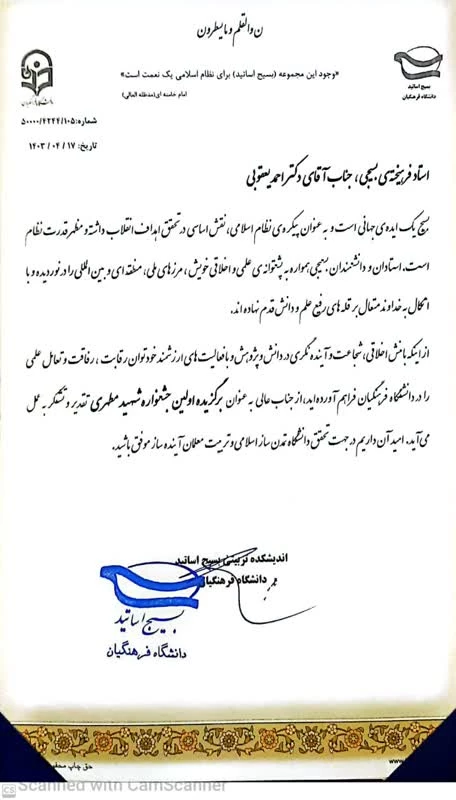 ن والقلم و ما یسطرون
«وجود این مجموعه (بسیج اساتید) برای نظام اسلامی یک نعمت است»
امام خامنه ای(مدظله العالی)
بسیج اساتید
دانشگاه فرهنگیان
شماره:۵۰۰۰۰/۴۲۴۴/۱۰۵
تاریخ: ۱۷ / ۰۴ / ۱۴۰۳
استاد فرهیخته‌ی بسیجی، جناب آقای دکتر احمد یعقوبی
بسیج یک ایده‌ی جهانی است و به عنوان پیکره‌ی نظام اسلامی، نقش اساسی در تحقق اهداف انقلاب داشته و مظهر قدرت نظام
است. استادان و دانشمندان بسیجی همواره به پشتوانه‌ی علمی و اخلاقی خویش، مرزهای ملی، منطقه ای و بین المللی را درنوردیده و با
اتکال به خداوند متعال بر قله های رفیع علم و دانش قدم نهاده اند.
از اینکه با منش اخلاقی، شجاعت و آینده نگری در دانش و پژوهش و با فعالیت های ارزشمند خود توان رقابت، رفاقت و تعامل علمی
را در دانشگاه فرهنگیان فراهم آورده اید، از جناب عالی به عنوان برگزیده اولین جشنواره شهید مطهری تقدیر و تشکر به عمل
می آید. امید آن داریم در جهت تحقق دانشگاه تمدن ساز اسلامی و تربیت معلمان آینده ساز موفق باشید.
اندیشکده تربیتی بسیج اساتید
دانشگاه فرهنگیان
بسیج اساتید
دانشگاه فرهنگیان
حق چاپ محفوظ
www.
CS Scanned with CamScanner